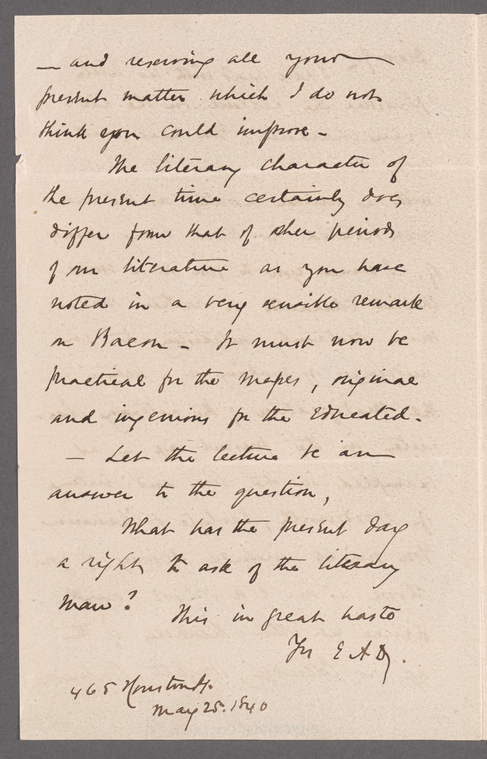 — and reserving all your
present matter which I do not
think you could improve -
The literary character of
the present time certainly does
differ from that of other periods
of our literature as you have
noted in a very sensible remark
on Bacon - It must now be
practical for the masses, original
and ingenious for the Educated.
— Let the lecture be an
answer to the question,
What has the present day
a right to ask of the literary
man?
This in great haste
Yrs E A D.
465 Houston St.
May 25. 1840